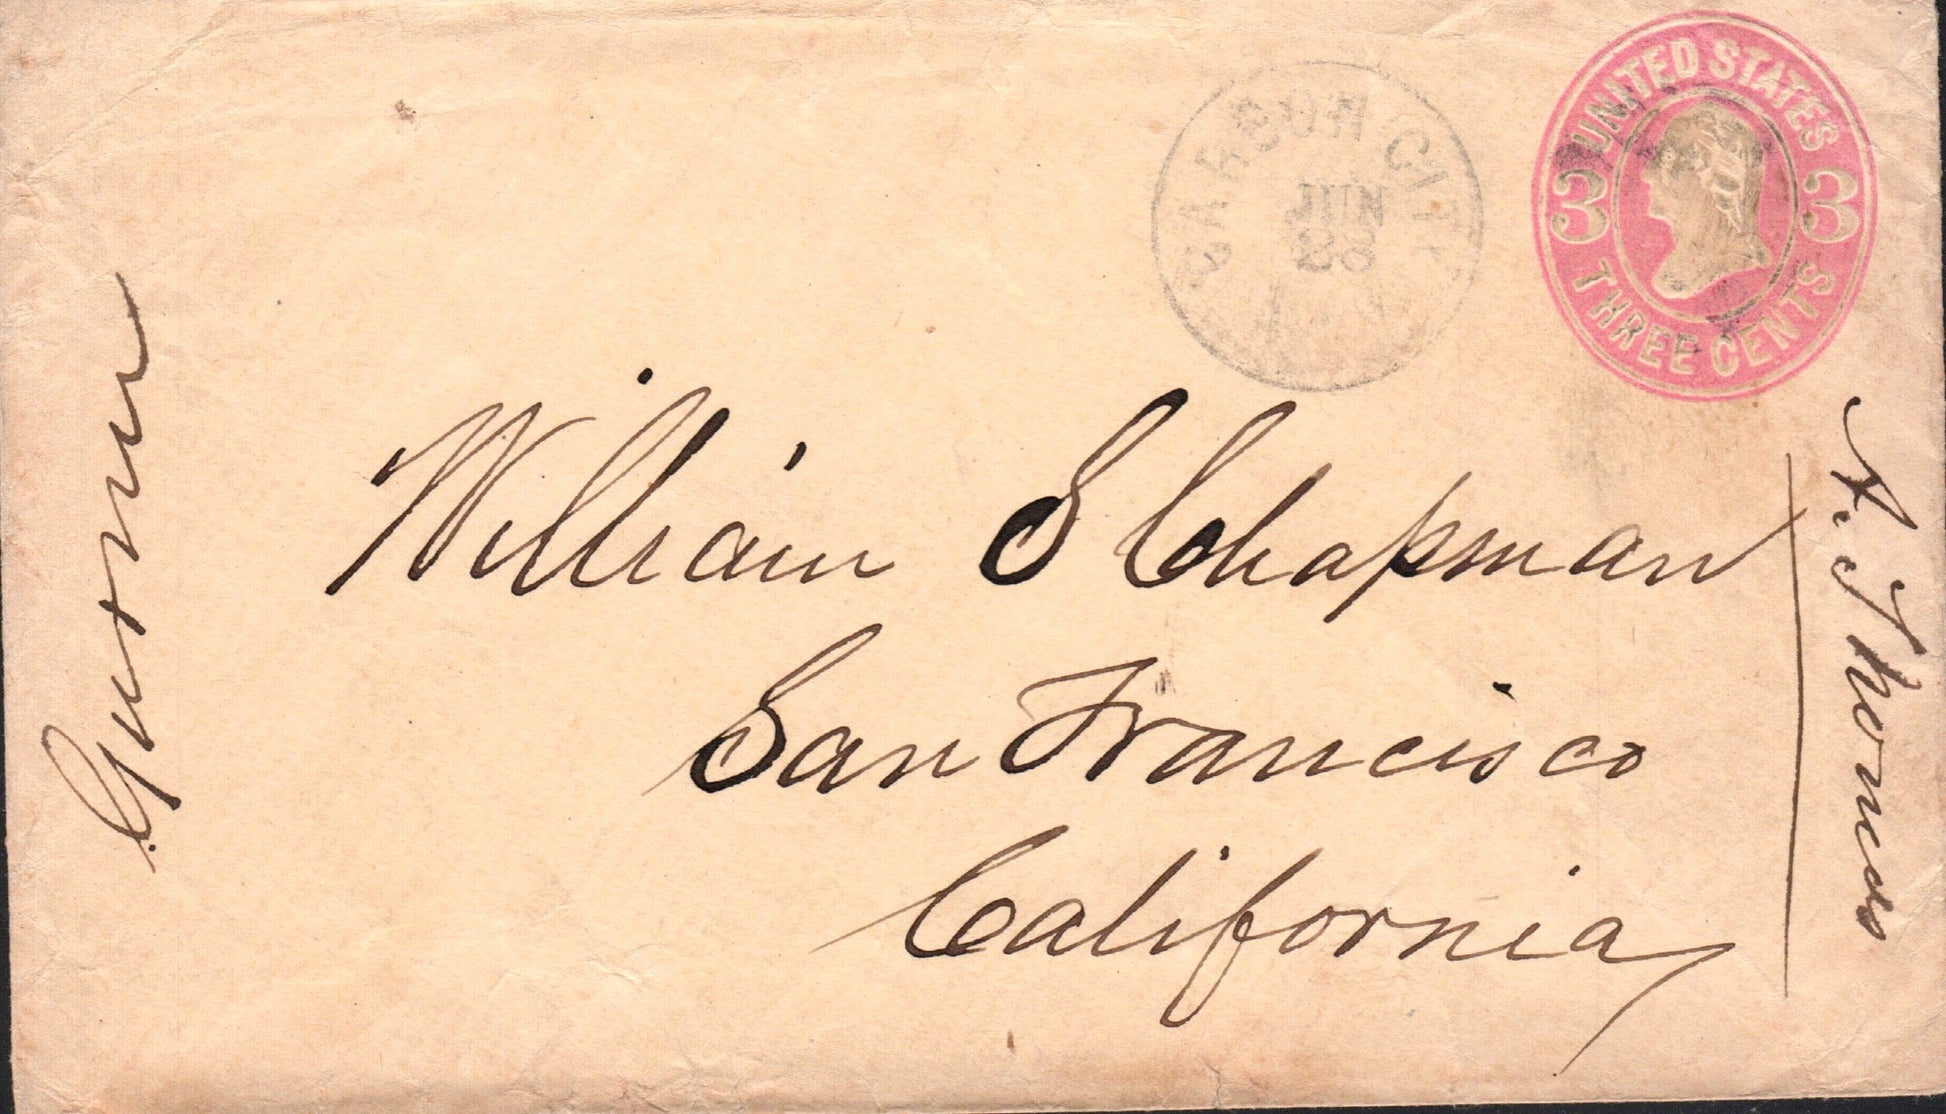 UNITED STATES
3 3
THREE CENTS
CARSON CITY
JUN
28
William S Chapman
San Francisco
California
A. Thomas